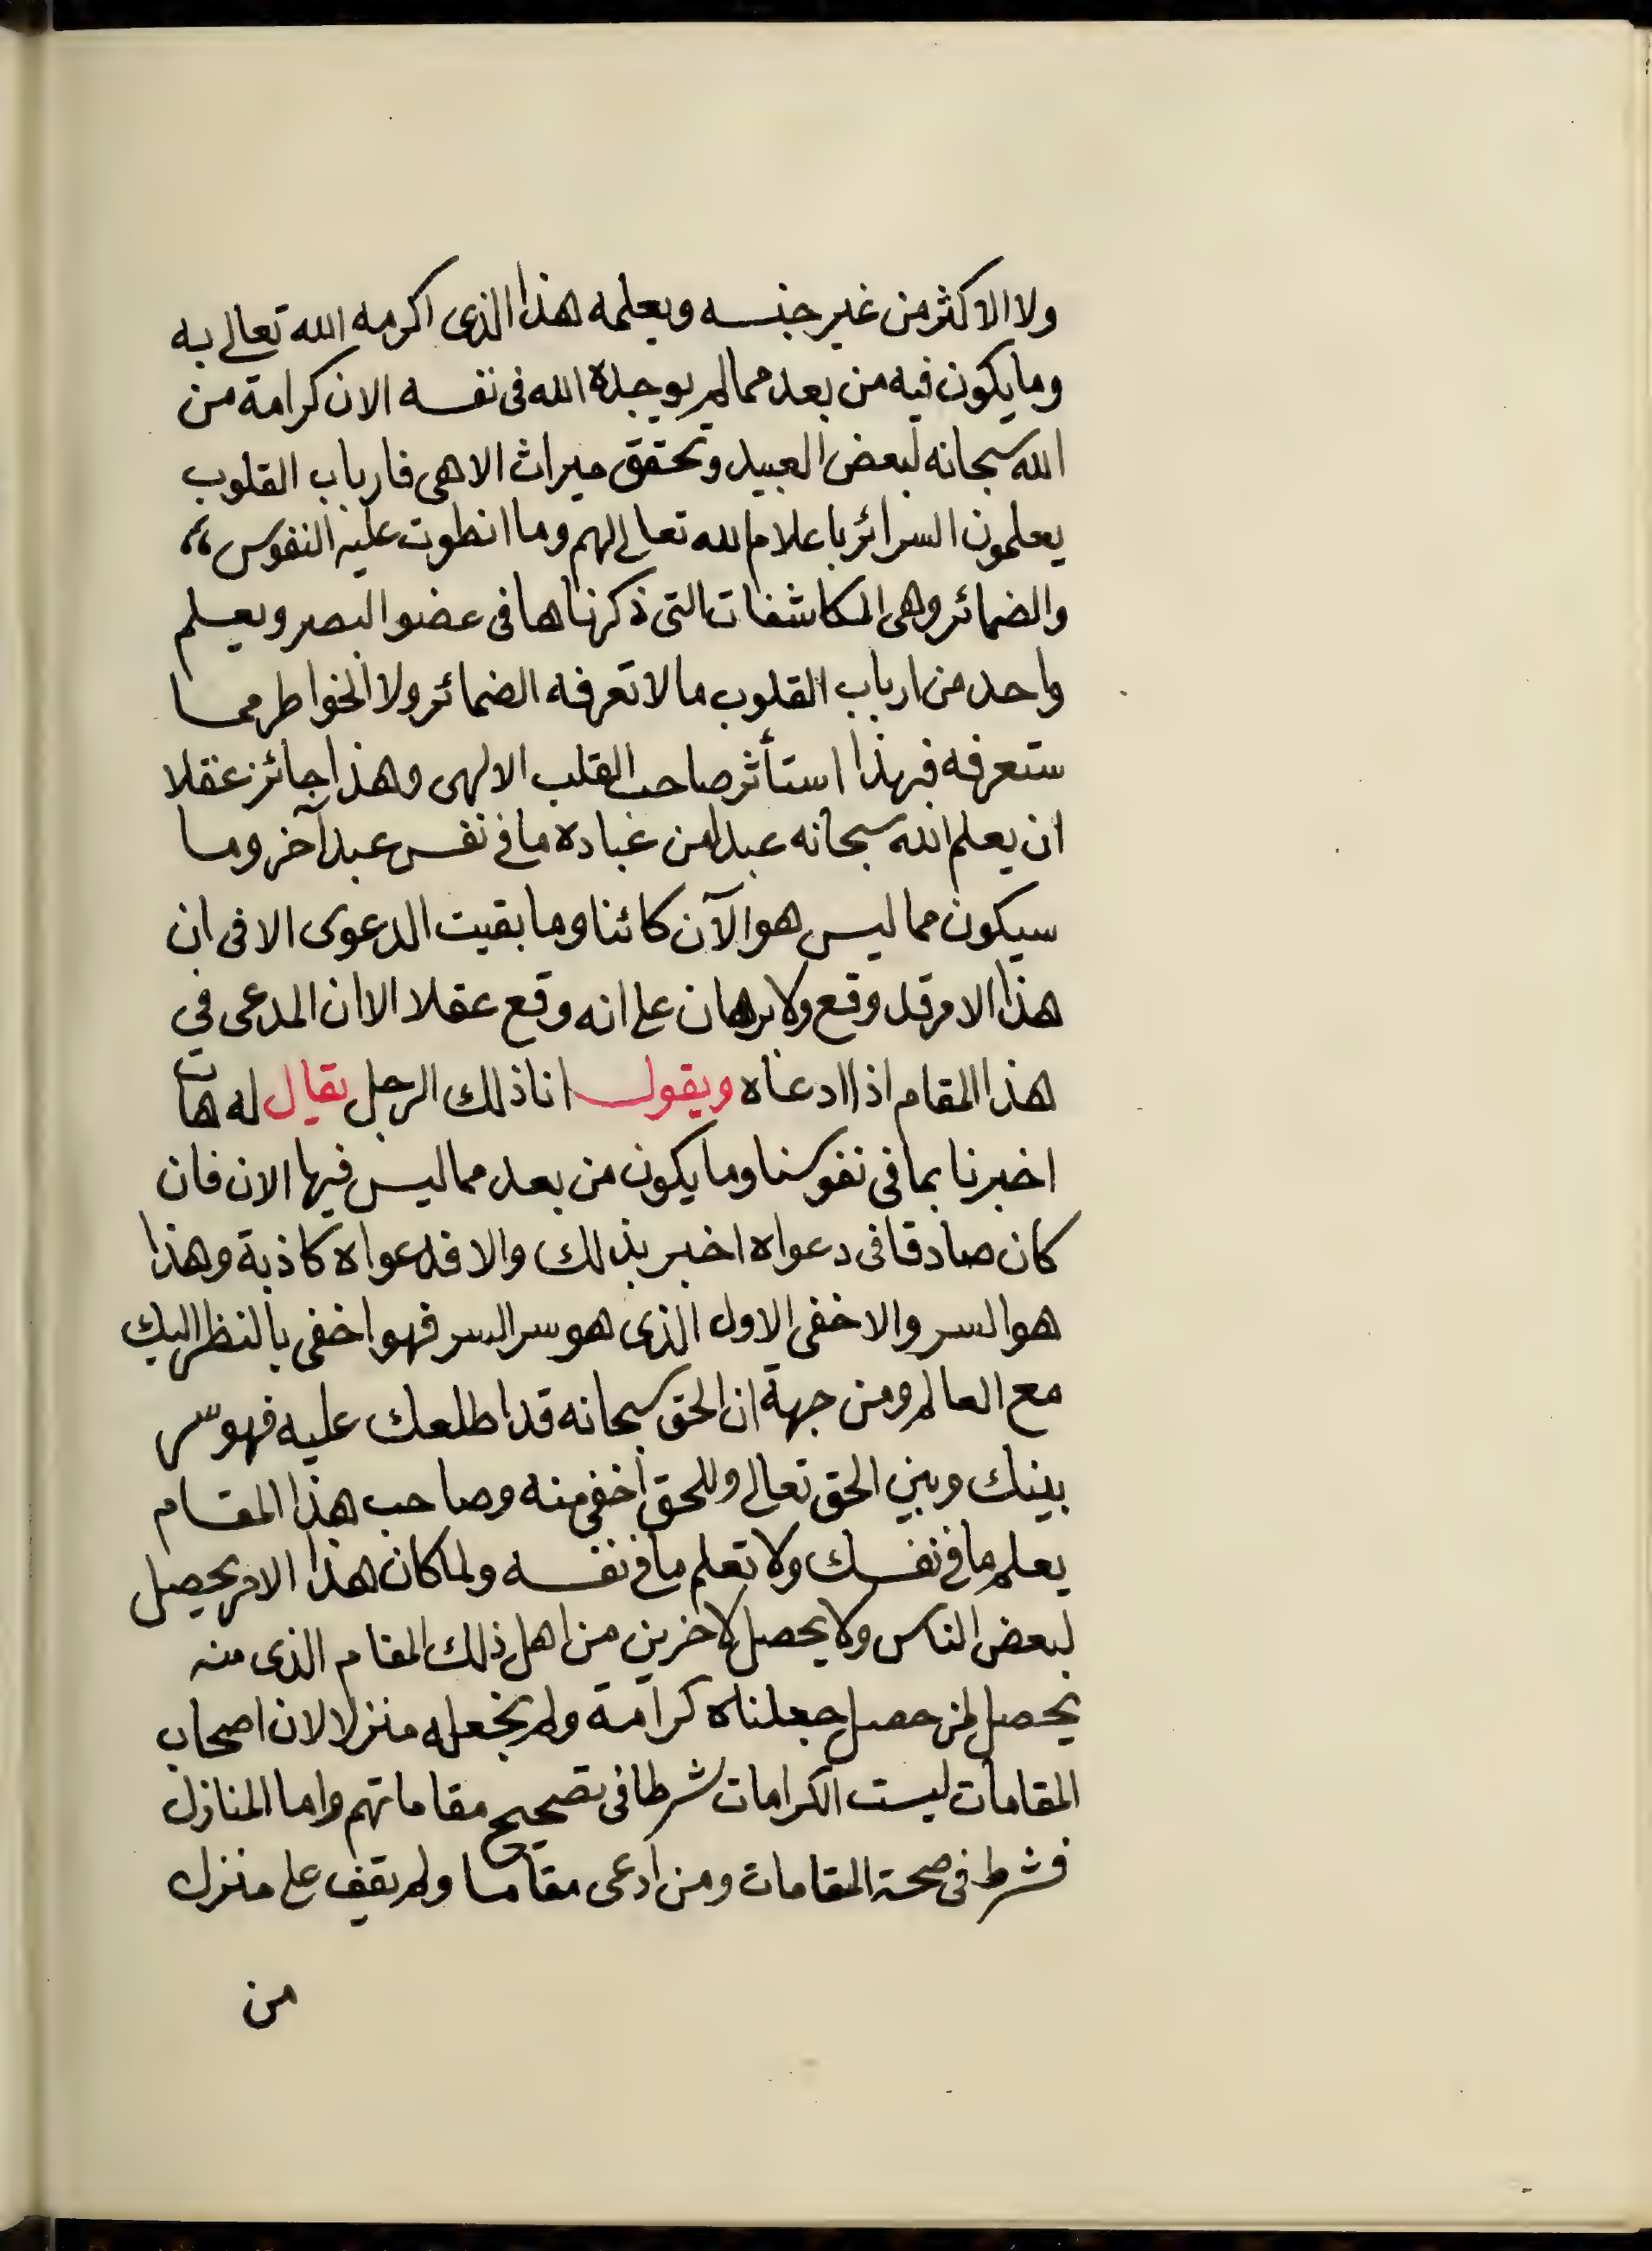 ولا الاكثر من غير جنسه ويعلمه هذا الذى اكرمه الله تعالى به
وما يكون فيه من بعد مما لم يوجده الله فى نفسه الان كرامة من
الله سبحانه لبعض العبيد وتحقق ميراث الاهى فارباب القلوب
يعلمون السرائر باعلام الله تعالى لهم وما انطوت عليه النفوس
والضمائر وهى المكاشفات التى ذكرناها فى عضو البصر ويعلم
واحد من ارباب القلوب ما لا تعرفه الضمائر ولا الخواطر مما
ستعرفه فبهذا استأثر صاحب القلب الالهى وهذا جائز عقلا
ان يعلم الله سبحانه عبدا من عباده ما فى نفس عبد آخر وما
سيكون مما ليس هو الآن كائنا وما بقيت الدعوى الا فى ان
هذا الامر قد وقع ولا برهان على انه وقع عقلا الا ان المدعى فى
هذا المقام اذا ادعاه ويقول انا ذلك الرجل يقال له هات
اخبرنا بما فى نفوسنا وما يكون من بعد مما ليس فيها الان فان
كان صادقا فى دعواه اخبر بذلك والا فدعواه كاذبة وهذا
هو السر والاخفى الاول الذى هو سر السر فهو اخفى بالنظر اليك
مع العالم ومن جهة ان الحق سبحانه قد اطلعك عليه فهو سر
بينك وبين الحق تعالى وللحق اخفى منه وصاحب هذا المقام
يعلم ما فى نفسك ولا تعلم ما فى نفسه ولما كان هذا الامر يحصل
لبعض الناس ولا يحصل لاخرين من اهل ذلك المقام الذى منه
يحصل لمن حصل جعلناه كرامة ولم نجعله منزلا لان اصحاب
المقامات ليست الكرامات شرطا فى تصحيح مقاماتهم واما المنازل
فشرط فى صحة المقامات ومن ادعى مقاما ولم يقف على منزل
من